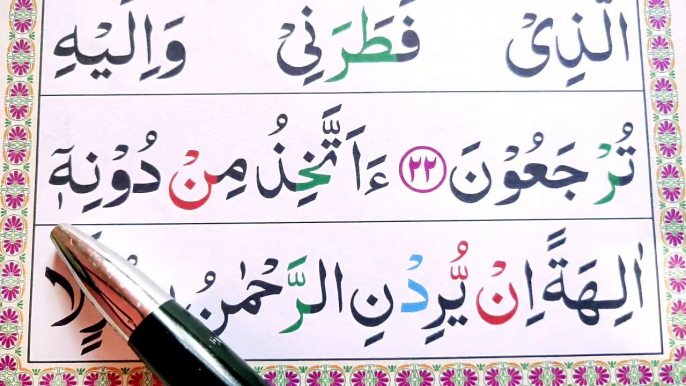 الَّذِیْ فَطَرَنِیْ وَاِلَیْهِ
تُرْجَعُوْنَ ۝٢٢ ءَاَتَّخِذُ مِنْ دُوْنِهٖۤ
اٰلِهَةً اِنْ یُّرِدْنِ الرَّحْمٰنُ